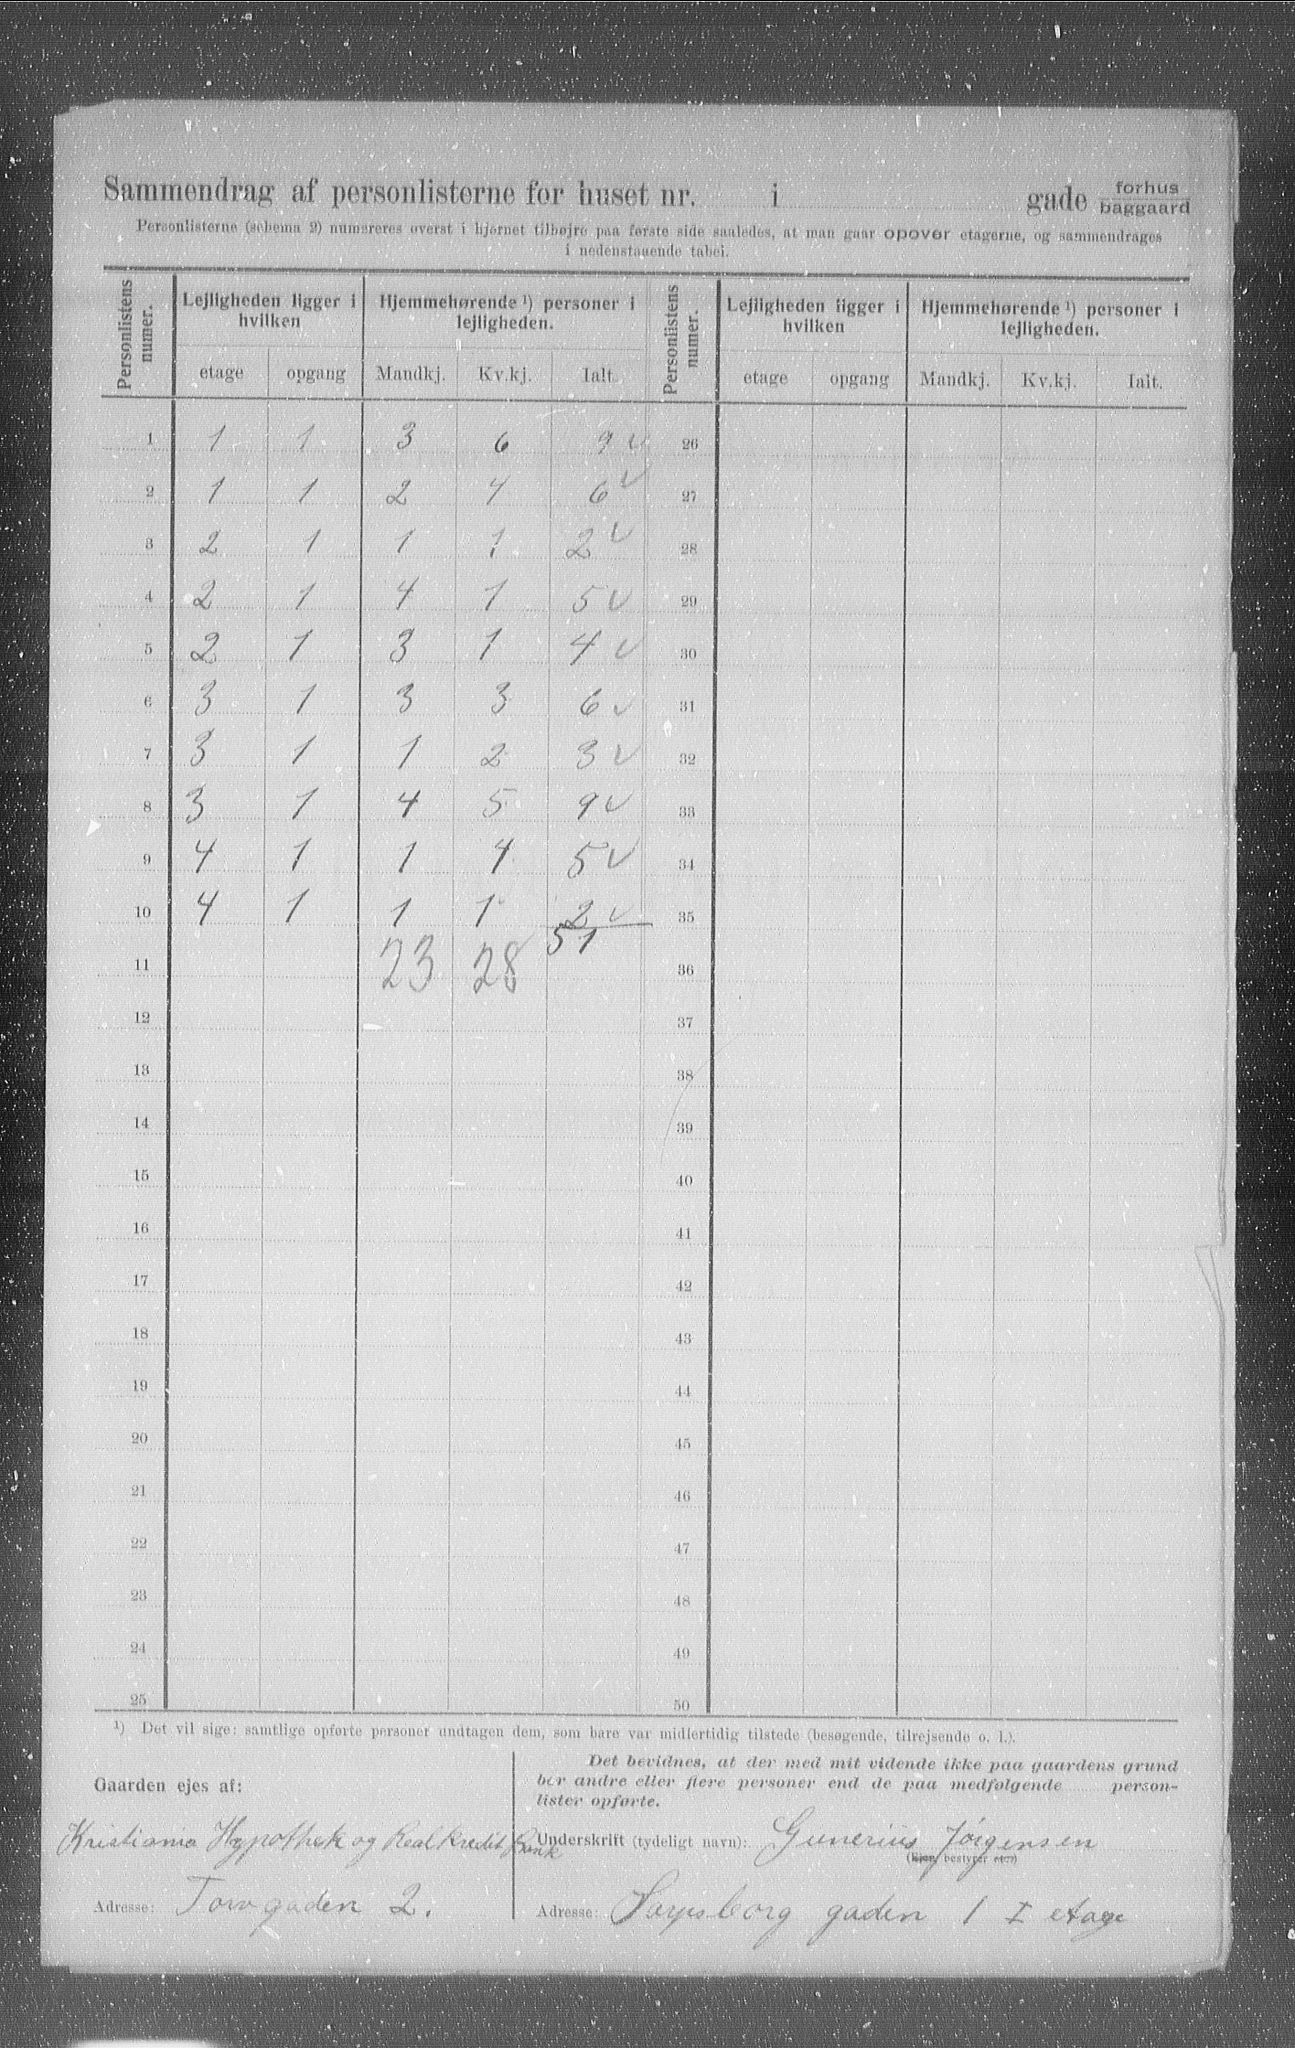 Sammendrag af personlisterne for huset nr. i gade forhus baggaard
Personlisterne (schema 2) numereres øverst i hjørnet tilhøjre paa første side saaledes, at man gaar opover etagerne, og sammendrages
i nedenstaaende tabel.
Personlistens numer. Lejligheden ligger i hvilken Hjemmehørende ¹) personer i lejligheden. Personlistens numer. Lejligheden ligger i hvilken Hjemmehørende ¹) personer i lejligheden.
etage opgang Mandkj. Kv.kj. Ialt. etage opgang Mandkj. Kv.kj. Ialt.
1 1 1 3 6 9 ✓ 26
2 1 1 2 4 6 ✓ 27
3 2 1 1 1 2 ✓ 28
4 2 1 4 1 5 ✓ 29
5 2 1 3 1 4 ✓ 30
6 3 1 3 3 6 ✓ 31
7 3 1 1 2 3 ✓ 32
8 3 1 4 5 9 ✓ 33
9 4 1 1 4 5 ✓ 34
10 4 1 1 1 2 ✓ 35
11 23 28 51 36
12 37
13 38
14 39
15 40
16 41
17 42
18 43
19 44
20 45
21 46
22 47
23 48
24 49
25 50
¹) Det vil sige: samtlige opførte personer undtagen dem, som bare var midlertidig tilstede (besøgende, tilrejsende o. l.).
Gaarden ejes af:
Kristiania Hypothek og Realkredit Bank
Adresse: Torvgaden 2.
Det bevidnes, at der med mit vidende ikke paa gaardens grund
bor andre eller flere personer end de paa medfølgende person-
lister opførte.
Underskrift (tydeligt navn): Gunerius Jörgensen
(Ejer, bestyrer etc.)
Adresse: Sarpsborg gaden 1 I etage